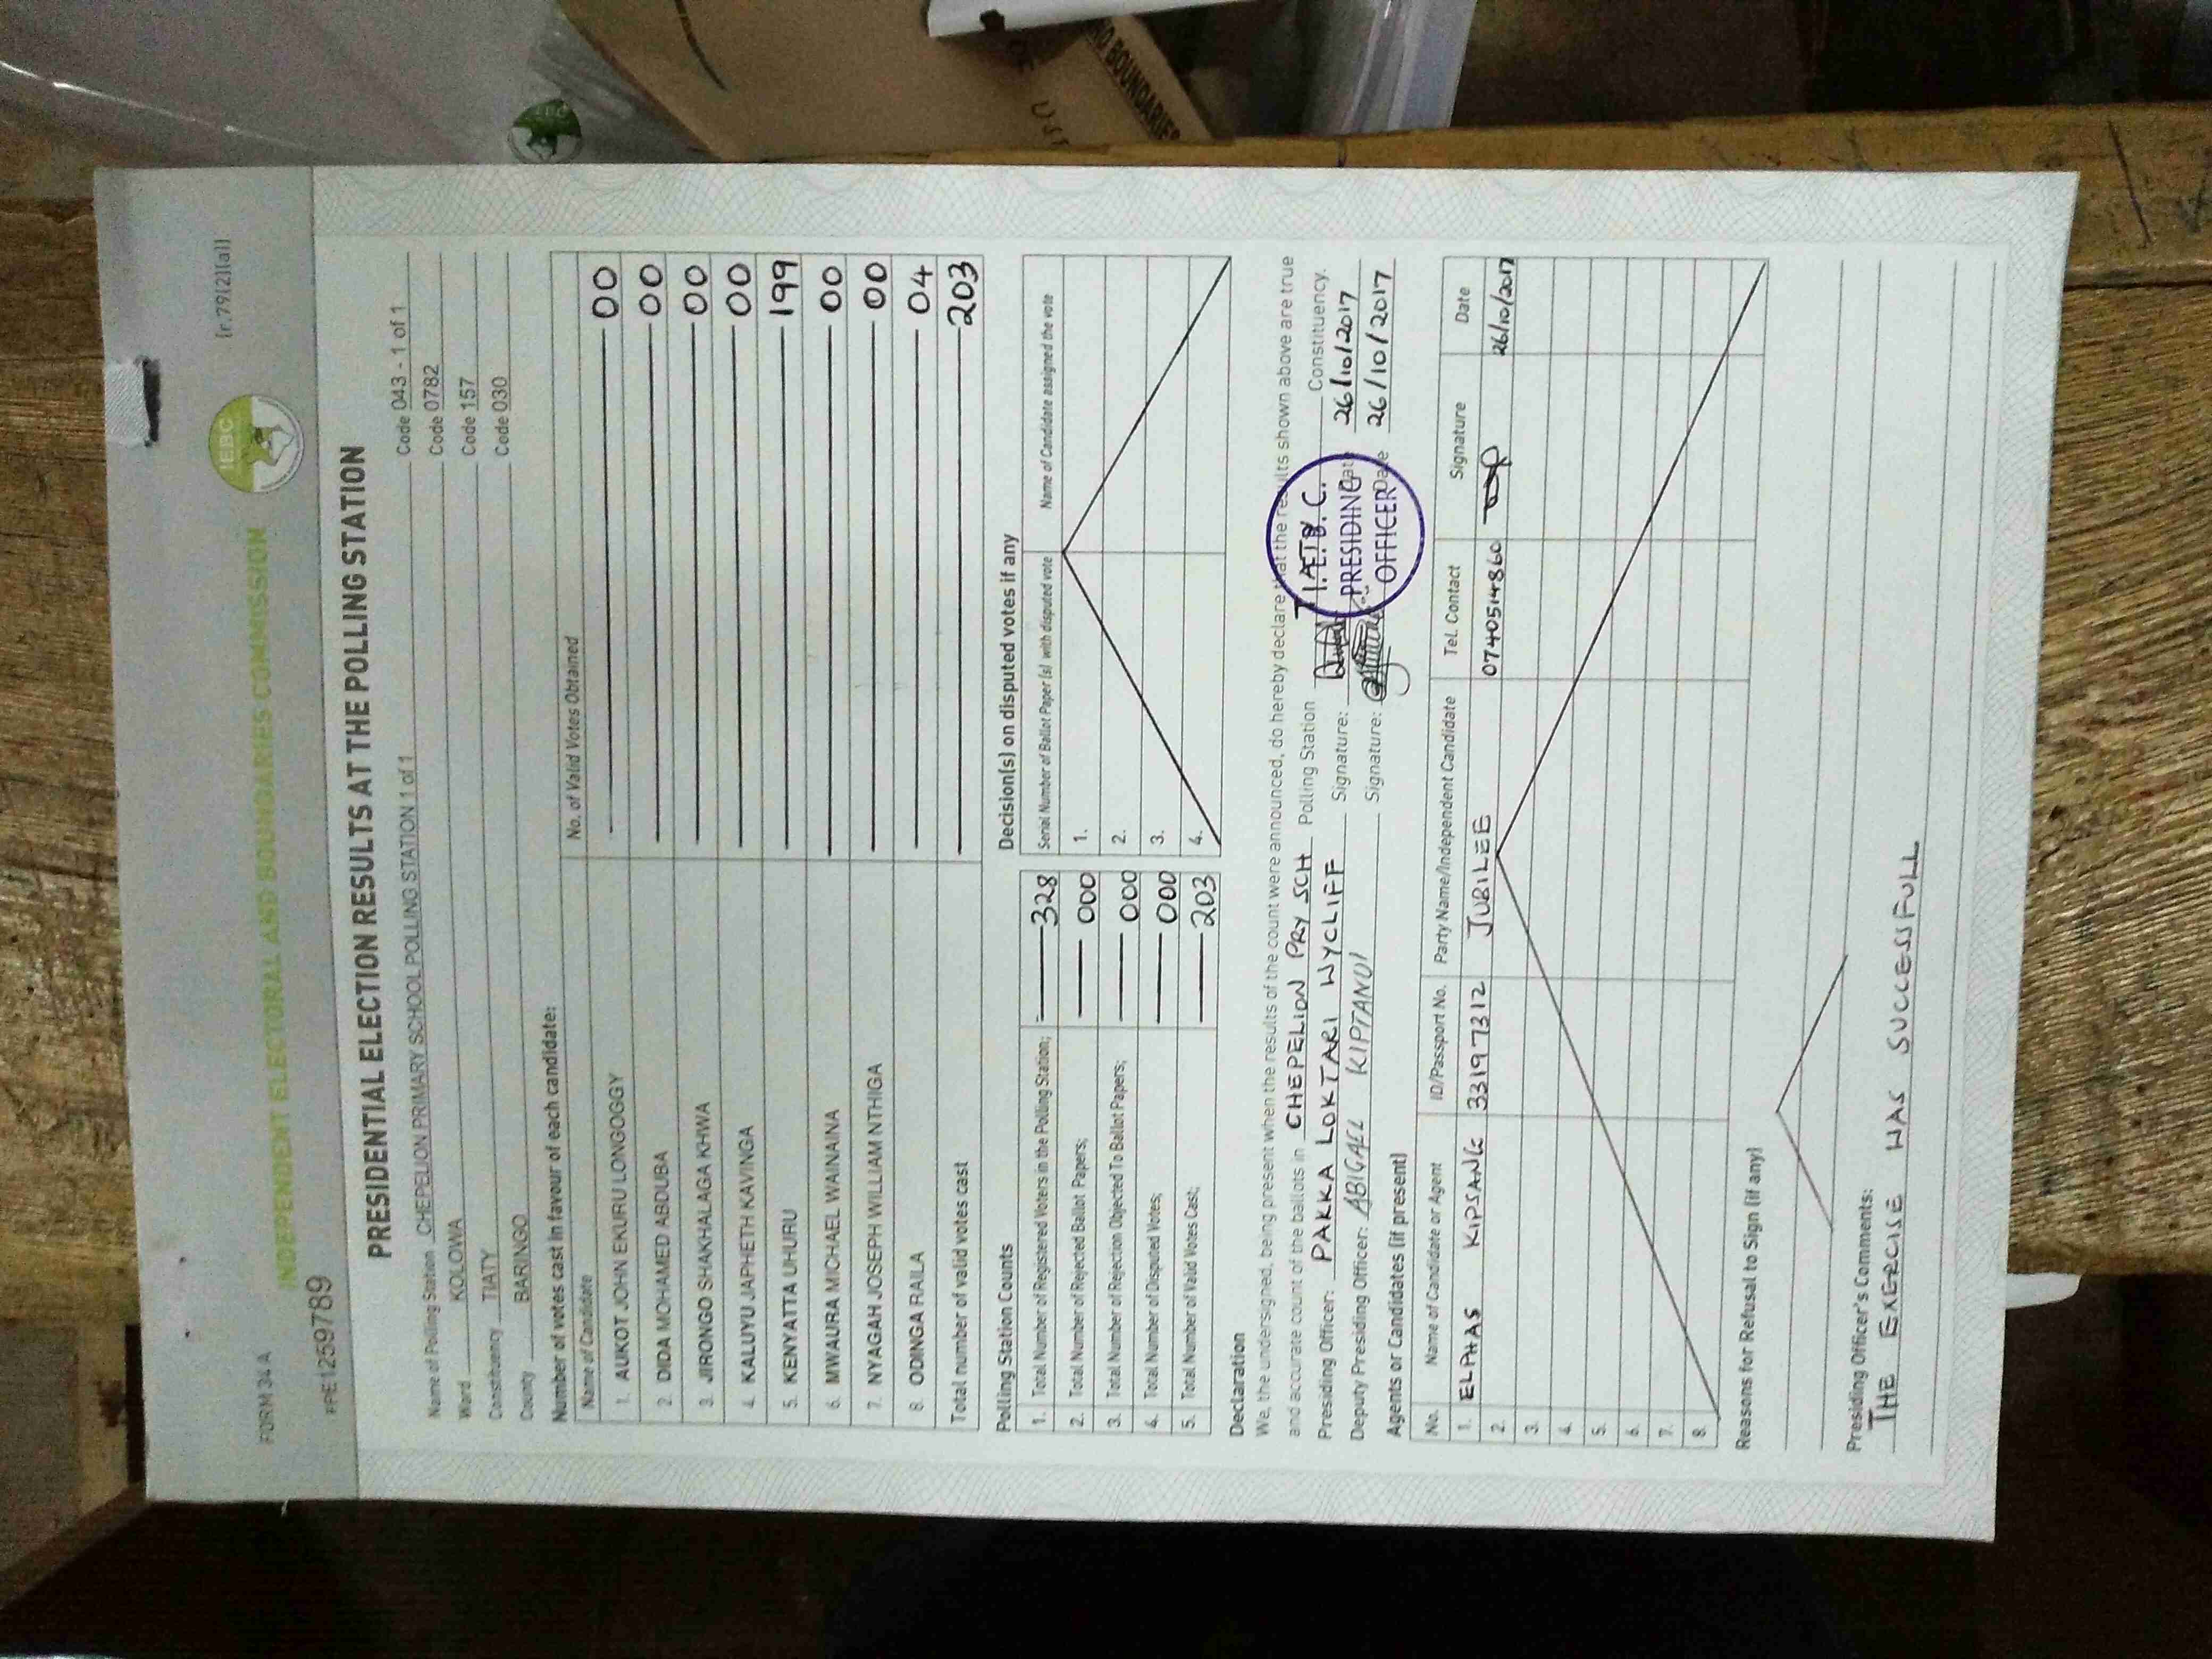 FORM 34 A
[r.79(2)(a)]
INDEPENDENT ELECTORAL AND BOUNDARIES COMMISSION
IEBC
PRESIDENTIAL ELECTION RESULTS AT THE POLLING STATION
Name of Polling Station CHEPELION PRIMARY SCHOOL POLLING STATION 1 of 1 Code 043 - 1 of 1
Ward KOLOWA Code 0782
Constituency TIATY Code 157
County BARINGO Code 030
Number of votes cast in favour of each candidate:
Name of Candidate No. of Valid Votes Obtained
1. AUKOT JOHN EKURU LONGOGGY 00
2. DIDA MOHAMED ABDUBA 00
3. JIRONGO SHAKHALAGA KHWA 00
4. KALUYU JAPHETH KAVINGA 00
5. KENYATTA UHURU 199
6. MWAURA MICHAEL WAINAINA 00
7. NYAGAH JOSEPH WILLIAM NTHIGA 00
8. ODINGA RAILA 04
Total number of valid votes cast 203
Polling Station Counts
1. Total Number of Registered Voters in the Polling Station; 328
2. Total Number of Rejected Ballot Papers; 000
3. Total Number of Rejection Objected To Ballot Papers; 000
4. Total Number of Disputed Votes; 000
5. Total Number of Valid Votes Cast; 203
Decision(s) on disputed votes if any
Serial Number of Ballot Paper (s) with disputed vote Name of Candidate assigned the vote
1.
2.
3.
4.
Declaration
We, the undersigned, being present when the results of the count were announced, do hereby declare that the results shown above are true
and accurate count of the ballots in CHEPELION PRY SCH Polling Station Constituency.
Presiding Officer: PAKKA LOKTARI WYCLIFF Signature: Date 26/10/2017
Deputy Presiding Officer: ABIGAEL KIPTANUI Signature: Date 26/10/2017
I.E.B.C.
PRESIDING
OFFICER
Agents or Candidates (if present)
No. Name of Candidate or Agent ID/Passport No. Party Name/Independent Candidate Tel. Contact Signature Date
1. ELPHAS KIPSANG 33197312 JUBILEE 0740514860 26/10/2017
2.
3.
4.
5.
6.
7.
8.
Reasons for Refusal to Sign (if any)
Presiding Officer's Comments:
THE EXERCISE WAS SUCCESSFULL
BOUNDARIES